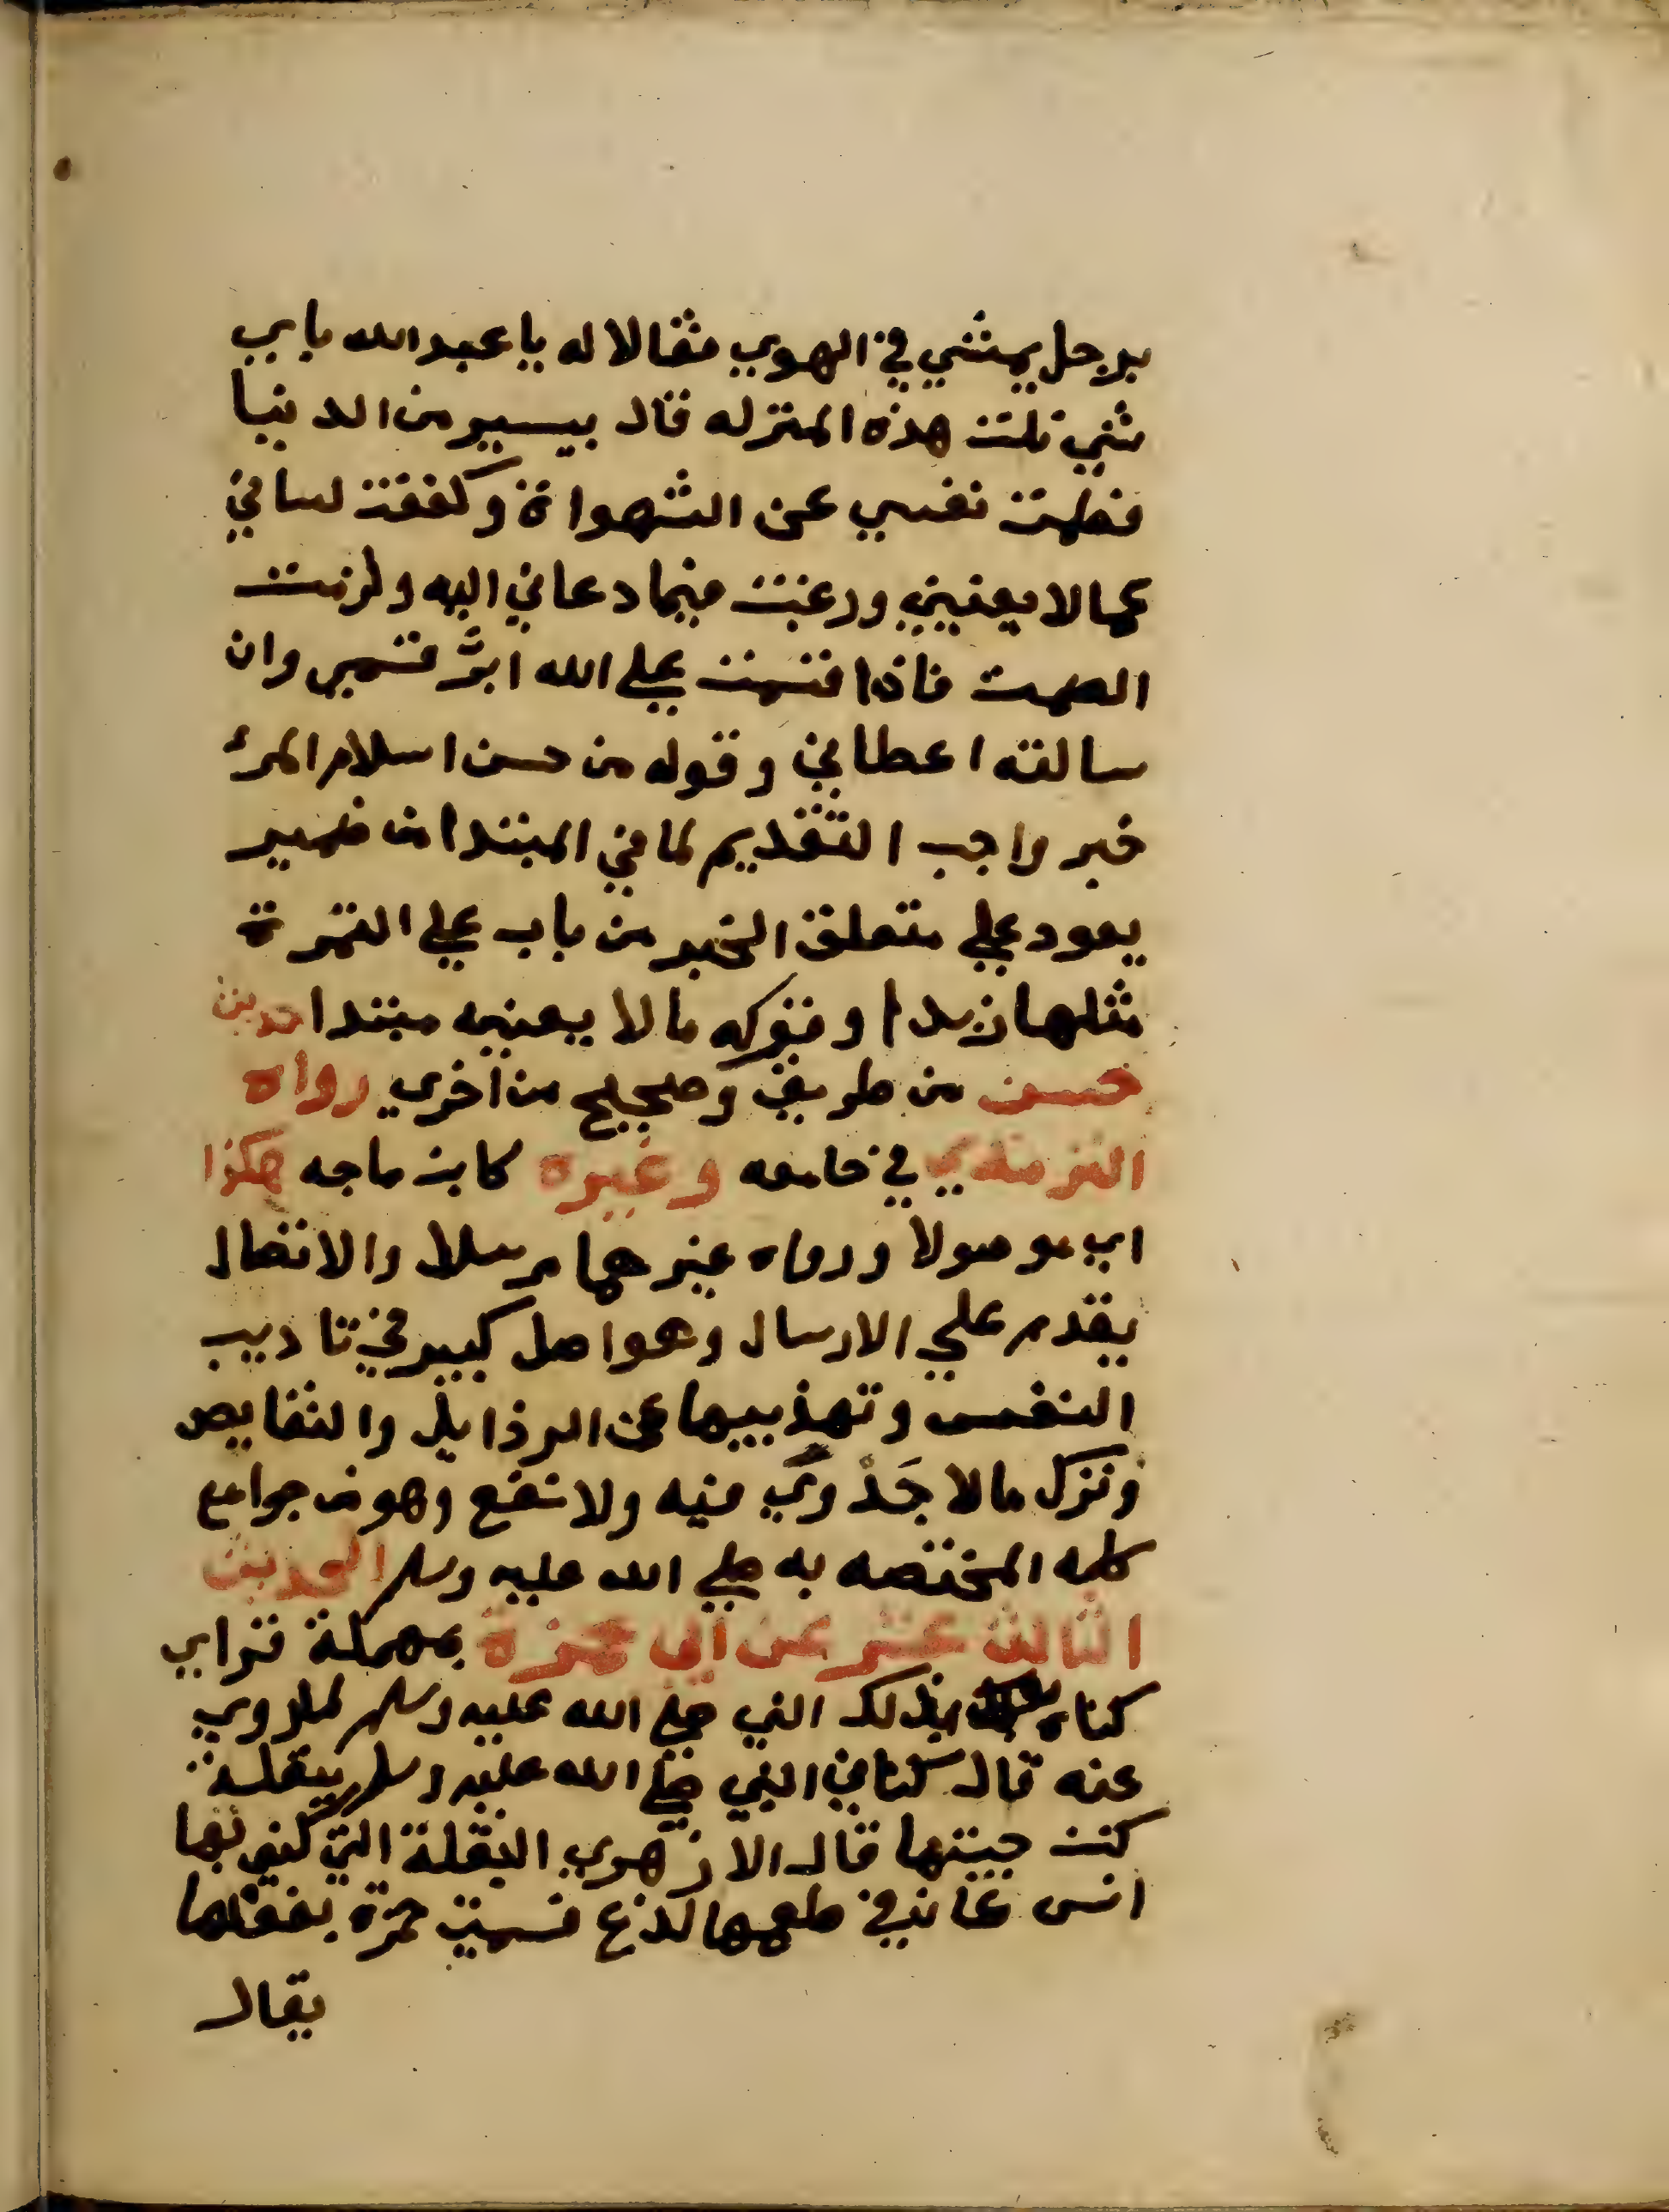 برجل يمشي في الهوي فقالا له يا عبد الله باي
شي نلت هذه المنزله قال بيسير من الدنيا
فطمت نفسي عن الشهواة وكففت لساني
عما لا يعنيني ورغبت فيما دعاني اليه ولزمت
الصمت فاذا اقسمت علي الله ابرَّ قسمي وان
سالته اعطاني وقوله من حسن اسلام المرء
خبر واجب التقديم لما في المبتدا من ضمير
يعود علي متعلق الخبر من باب علي التمرة
مثلها زبدا وتركه ما لا يعنيه مبتدا حديث
حسن من طريق وصحيح من اخري رواه
الترمذي في جامعه وغيره كابن ماجه هكذا
اي موصولا ورواه غيرهما مرسلا والاتصال
يقدم علي الارسال وهو اصل كبير في تاديب
النفس وتهذيبها عن الرذايل والنقايص
وترك ما لا جَدْوَي فيه ولا نفع وهو من جوامع
كلمه المختصه به صلي الله عليه وسلم الحديث
الثالث عشر عن ابي حمزة بمهملة فزاي
كناه بذلك النبي صلي الله عليه وسلم لما روي
عنه قال كناني النبي صلي الله عليه وسلم ببقلة
كنت جبيتها قال الازهري البقلة التي كني بها
انس كان في طعمها لذع فسميت حمزة بفعلها
يقال